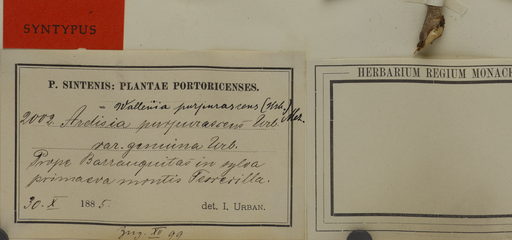 SYNTYPUS
P. SINTENIS: PLANTAE PORTORICENSES.
= Wallenia purpurascens (Urb.) Mez.
2002 Ardisia purpurascens Urb.
var. genuina Urb.
Prope Barranquitas in sylva
primaeva montis Torrecilla.
30. X 1885. det. I. URBAN.
HERBARIUM REGIUM MONACH